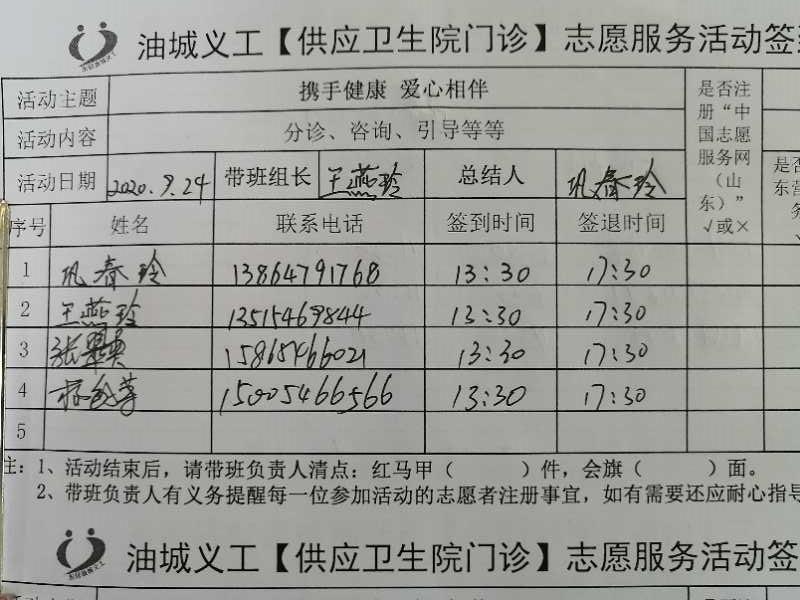 油城义工【供应卫生院门诊】志愿服务活动签到
活动主题 携手健康 爱心相伴 是否注册“中国志愿服务网（山东）”√或×
活动内容 分诊、咨询、引导等等
活动日期 2020.9.24 带班组长 王燕玲 总结人 巩春玲
序号 姓名 联系电话 签到时间 签退时间
1 巩春玲 13864791768 13:30 17:30
2 王燕玲 13515469844 13:30 17:30
3 张 13:30 17:30
4 15005466566 13:30 17:30
5
注：1、活动结束后，请带班负责人清点：红马甲（ ）件，会旗（ ）面。
2、带班负责人有义务提醒每一位参加活动的志愿者注册事宜，如有需要还应耐心指导
油城义工【供应卫生院门诊】志愿服务活动签